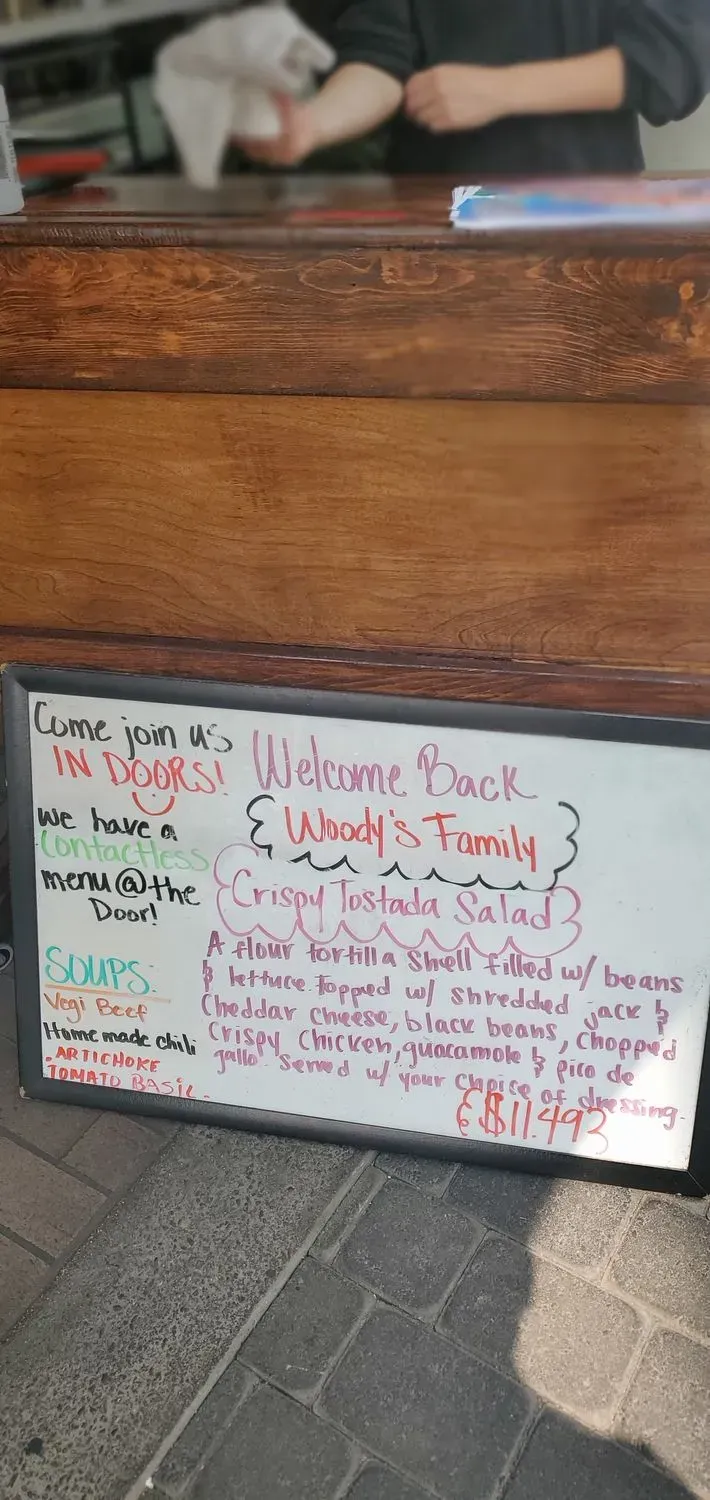 Come join us
IN DOORS!
We have a
Contactless
menu @ the
Door!
SOUPS:
Vegi Beef
Homemade chili
. ARTICHOKE
TOMATO BASIL.
Welcome Back
Woody's Family
Crispy Tostada Salad
A flour tortilla shell filled w/ beans
& lettuce. Topped w/ shredded jack &
Cheddar cheese, black beans, Chopped
Crispy Chicken, guacamole & pico de
gallo. Served w/ your choice of dressing.
$11.49